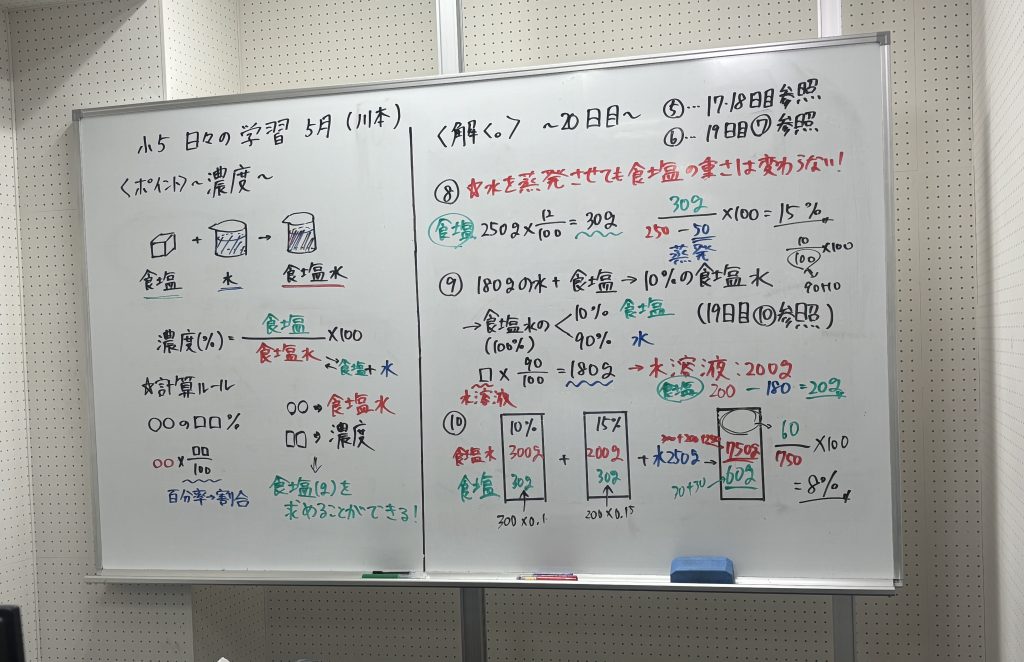 小5 日々の学習 5月 (川本)
〈ポイント〉~濃度~
+ →
食塩 水 食塩水
濃度(%)= 食塩/食塩水 ×100
食塩+水
☆計算ルール
○○の□□%
○○×□□/100
百分率→割合
○○→食塩水
□□→濃度
↓
食塩(g)を
求めることができる!
〈解く。〉 ~20日目~
⑤…17・18日目参照
⑥…19日目⑦参照
⑧ ☆水を蒸発させても食塩の重さは変わらない!
食塩 250g×12/100=30g
30g/250-50 ×100=15%
蒸発
10/100×100
90+10
⑨ 180gの水+食塩→10%の食塩水
→食塩水の 10% 食塩
(100%) 90% 水
(19日目⑩参照)
□×90/100=180g →水溶液:200g
水溶液
食塩 200-180=20g
⑩ 10% 15%
食塩水 300g + 200g +水250g→ 750g
食塩 30g 30g 30+30 60g
300×0.1 200×0.15
60/750×100
=8%